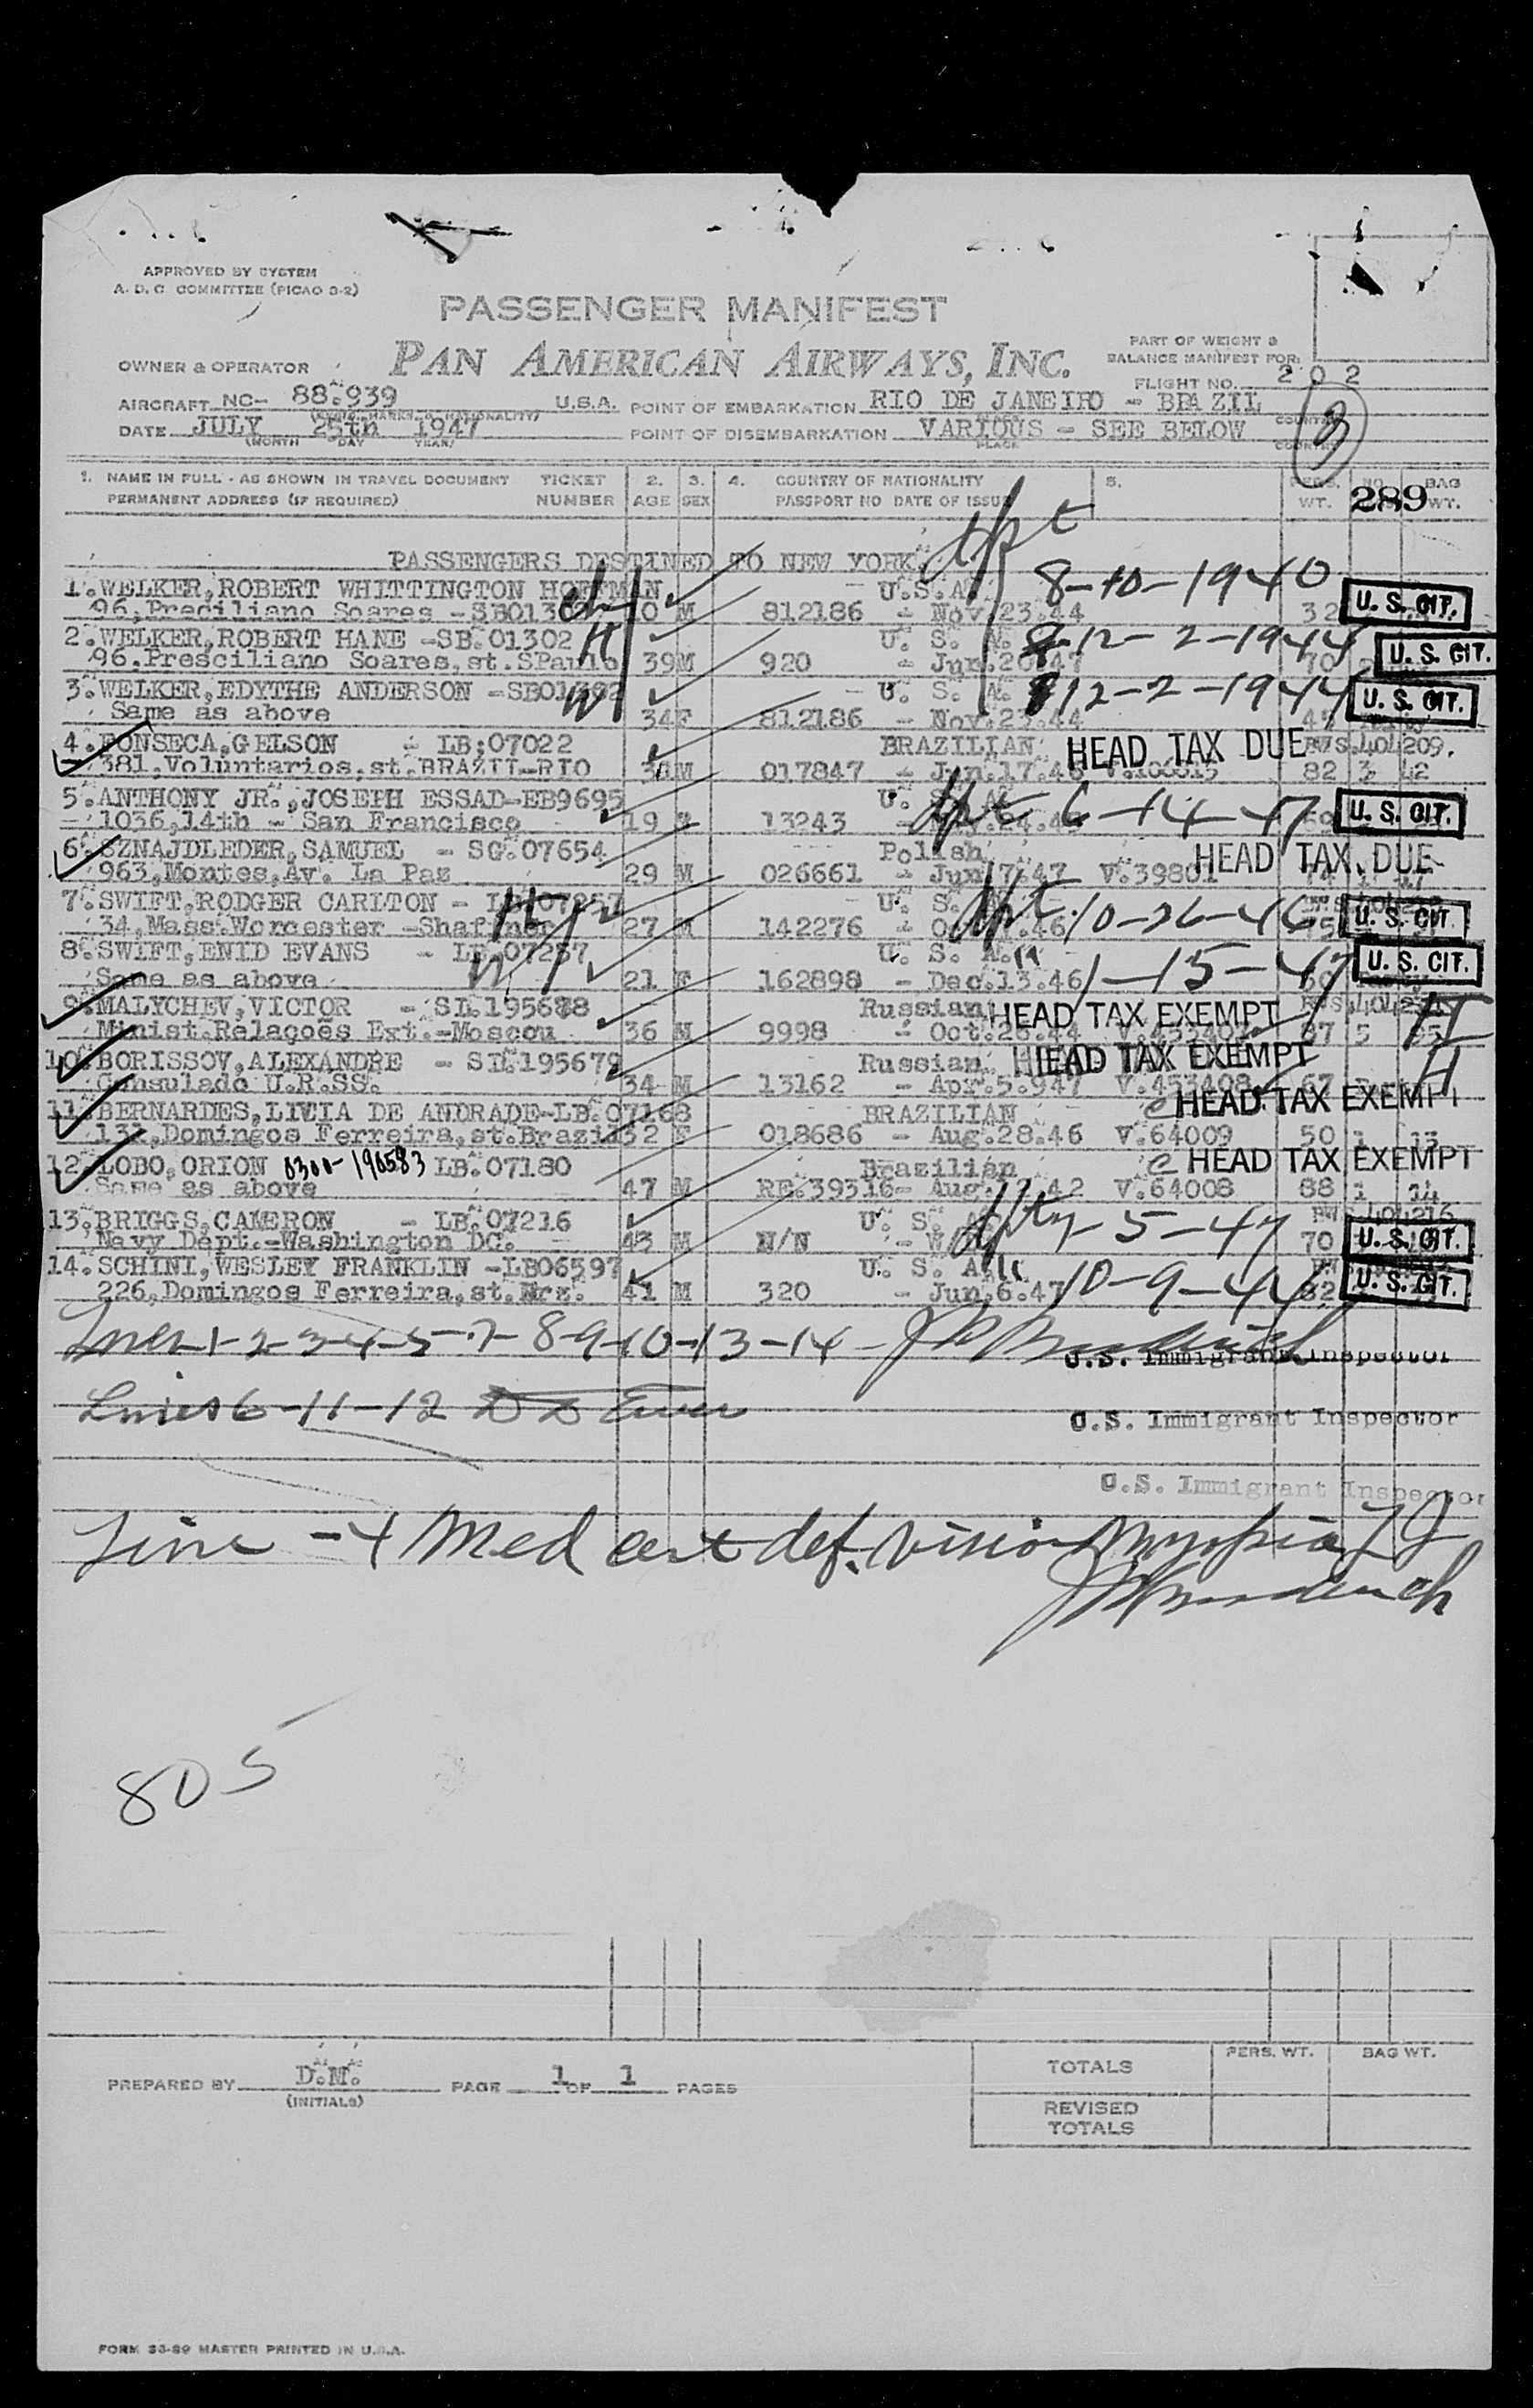 APPROVED BY SYSTEM
A. D. C COMMITTEE (PICAO 3-2)
PASSENGER MANIFEST
PART OF WEIGHT &
BALANCE MANIFEST FOR:
OWNER & OPERATOR PAN AMERICAN AIRWAYS, INC.
FLIGHT NO. 202
AIRCRAFT NC- 88.939 U.S.A. POINT OF EMBARKATION RIO DE JANEIRO - BRAZIL
DATE JULY 25th 1947 POINT OF DISEMBARKATION VARIOUS - SEE BELOW
(MONTH DAY YEAR) PLACE COUNTRY
3
1. NAME IN FULL - AS SHOWN IN TRAVEL DOCUMENT TICKET 2. 3. 4. COUNTRY OF NATIONALITY 5. PERS. NO. BAG
PERMANENT ADDRESS (IF REQUIRED) NUMBER AGE SEX PASSPORT NO DATE OF ISSUE WT. 289 WT.
PASSENGERS DESTINED TO NEW YORK
1. WELKER, ROBERT WHITTINGTON HOFFMAN. U.S.A. 8-10-1940
96, Preciliano Soares - M 812186 - Nov.23.44 32 U. S. CIT.
2. WELKER, ROBERT HANE -SB. 01302 U. S. A. 12-2-1944
96.Presciliano Soares, st. SPaulo 39 M 920 - Jun.20.47 70 U. S. CIT.
3. WELKER, EDYTHE ANDERSON - U. S. A. 12-2-1944
Same as above 34 F 812186 - Nov.23.44 U. S. CIT.
4. FONSECA, GELSON - LB:07022 BRAZILIAN HEAD TAX DUE 404209.
381.Voluntarios, st. BRAZIL-RIO M 017847 - Jun.17.46 82 3 42
5. ANTHONY JR., JOSEPH ESSAD-EB9695 U. S. A. 6-14-47
1036,14th - San Francisco 19 M 13243 U. S. CIT.
6. SZNAJDLEDER, SAMUEL - SG. 07654 Polish HEAD TAX DUE
963, Montes, Av. La Paz 29 M 026661 - Jun 7.47 V.39801
7. SWIFT, RODGER CARLTON - U. S. 10-26-46
34, Mass. Worcester - 27 M 142276 - U. S. CIT.
8. SWIFT, ENID EVANS - LB. 07257 U. S. A. 1-15-47
Same as above 21 F 162898 - Dec.13.46 U. S. CIT.
9. MALYCHEV, VICTOR - SI. 195678 Russian HEAD TAX EXEMPT
Minist. Relaçoẽs Ext.-Moscou 36 M 9998 - Oct.26.44 87 5
10. BORISSOV, ALEXANDRE - SI. 195679 Russian HEAD TAX EXEMPT
Consulado U.R.SS. 34 M 13162 - Apr.5.947 V.453408 67 H
11. BERNARDES, LIVIA DE ANDRADE-LB. 07168 BRAZILIAN HEAD TAX EXEMPT
131, Domingos Ferreira, st. Brazil 32 F 018686 - Aug.28.46 V.64009 50 1 13
12. LOBO, ORION 0300-190583 LB. 07180 Brazilian HEAD TAX EXEMPT
Same as above 47 M RE.39316- Aug. 42 V.64008 88 1 14
13. BRIGGS, CAMERON - LB. 07216 U. S. A. 7-5-47 404216
Navy Dept.-Washington DC. 43 M N/N 70 U. S. CIT.
14. SCHINI, WESLEY FRANKLIN -LB06597 U. S. A. 10-9-44
226, Domingos Ferreira, st. 41 M 320 - Jun.6.47 82 U. S. CIT.
Lines 1-2-3-4-5-7-8-9-10-13-14 -
U.S. Immigrant Inspector
Lines 6-11-12
U.S. Immigrant Inspector
U.S. Immigrant Inspector
Line -4 Med cert def. vision myopia
805
PREPARED BY D.M. PAGE 1 OF 1 PAGES
(INITIALS)
PERS. WT. BAG WT.
TOTALS
REVISED
TOTALS
FORM 33-29 MASTER PRINTED IN U.S.A.